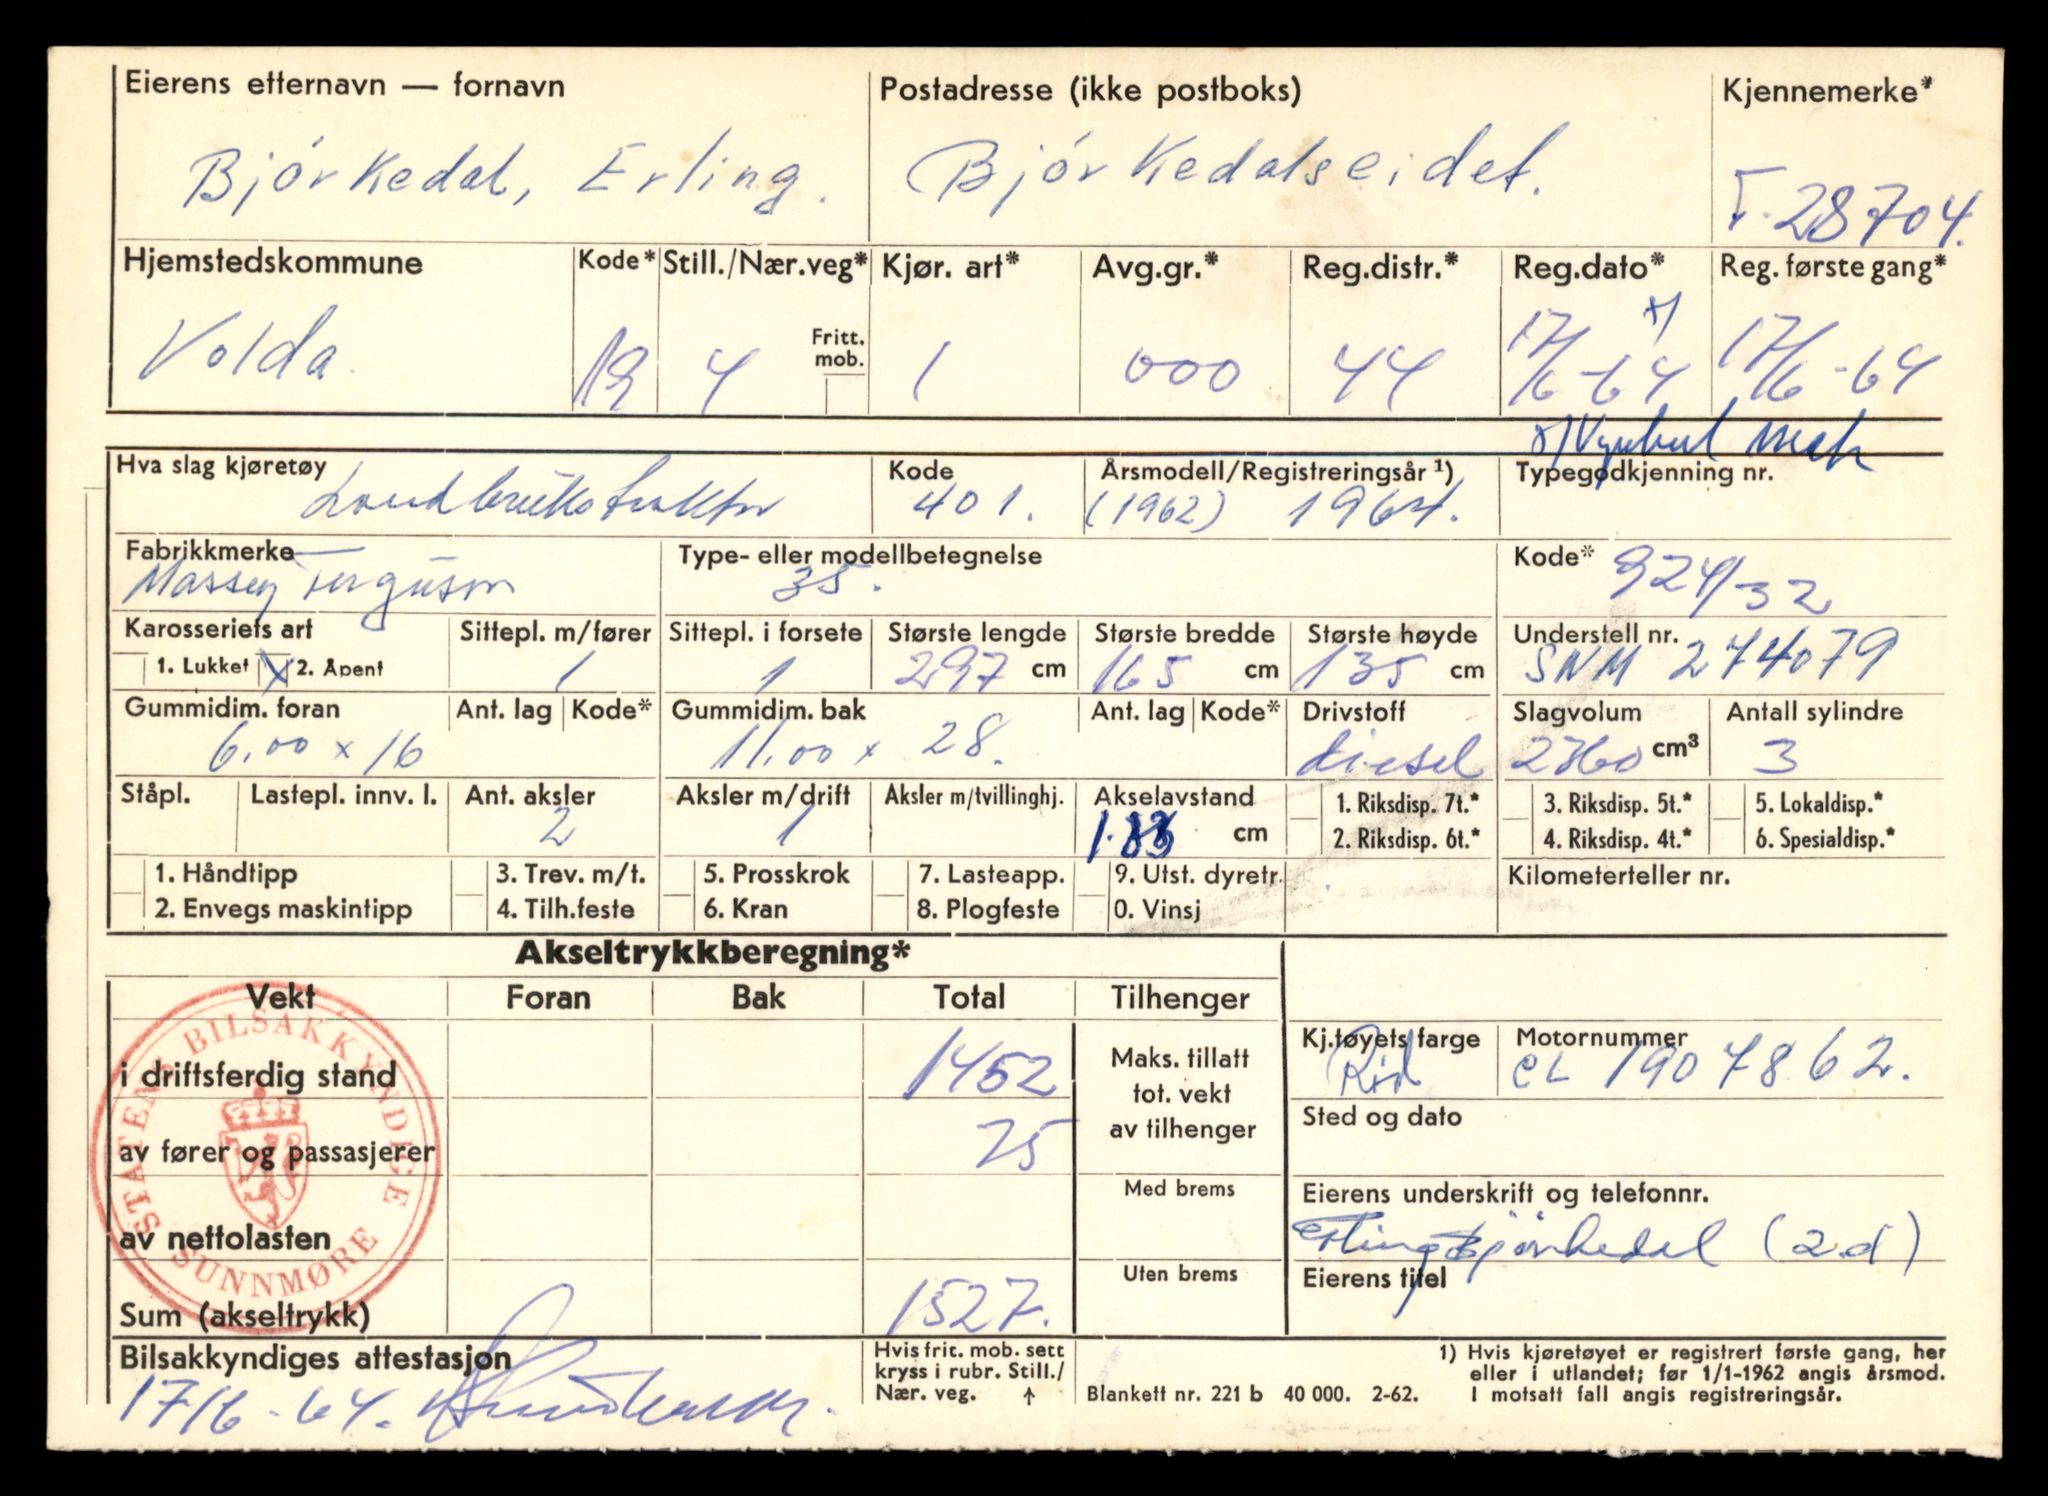 Eierens etternavn — fornavn Postadresse (ikke postboks) Kjennemerke*
Bjórkedal, Erling. Bjórkedalseidet. T-28704.
Hjemstedskommune Kode* Still./Nær.veg* Kjør. art* Avg.gr.* Reg.distr.* Reg.dato* Reg. første gang*
Volda. 19 4 Fritt. mob. 1 000 44 17/6-64 x) 17/6-64
Hva slag kjøretøy Kode Årsmodell/Registreringsår ¹) Typegodkjenning nr.
Landbrukstraktor 401. (1962) 1964.
Fabrikkmerke Type- eller modellbetegnelse Kode*
Massey Ferguson 35. 924/32
Karosseriets art Sittepl. m/fører Sittepl. i forsete Største lengde Største bredde Største høyde Understell nr.
1. Lukket X 2. Åpent 1 1 297 cm 165 cm 135 cm SNM 274079
Gummidim. foran Ant. lag Kode* Gummidim. bak Ant. lag Kode* Drivstoff Slagvolum Antall sylindre
6.00 x 16 11.00 x 28. diesel 2360 cm³ 3
Ståpl. Lastepl. innv. l. Ant. aksler Aksler m/drift Aksler m/tvillinghj. Akselavstand 1. Riksdisp. 7t.* 3. Riksdisp. 5t.* 5. Lokaldisp.*
2 1 cm 2. Riksdisp. 6t.* 4. Riksdisp. 4t.* 6. Spesialdisp.*
1. Håndtipp 3. Trev. m/t. 5. Prosskrok 7. Lasteapp. 9. Utst. dyretr. Kilometerteller nr.
2. Envegs maskintipp 4. Tilh.feste 6. Kran 8. Plogfeste 0. Vinsj
Akseltrykkberegning*
Vekt Foran Bak Total Tilhenger
i driftsferdig stand 1452 Maks. tillatt tot. vekt av tilhenger
Kj.tøyets farge Motornummer
Rød CL 1907862.
av fører og passasjerer 75
Sted og dato
Med brems
Eierens underskrift og telefonnr.
av nettolasten
Erling Bjørkedal (2d)
Uten brems
Eierens titel
Sum (akseltrykk) 1527.
STATENS BILSAKKYNDIGE
SUNNMØRE
Bilsakkyndiges attestasjon
17/6-64.
Hvis frit. mob. sett
kryss i rubr. Still./
Nær. veg. ↑
Blankett nr. 221 b 40 000. 2-62.
1) Hvis kjøretøyet er registrert første gang, her
eller i utlandet; før 1/1-1962 angis årsmod.
I motsatt fall angis registreringsår.